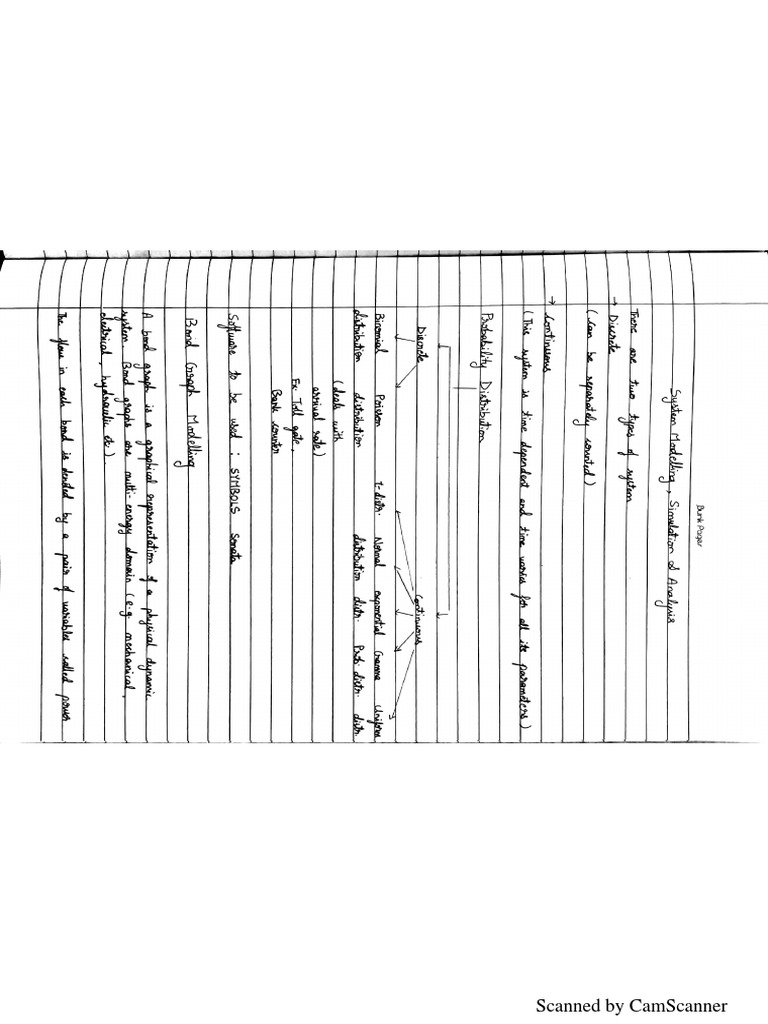 Bunk Paper
System Modelling, Simulation & Analysis
There are two types of system
→ Discrete
(can be separately counted)
→ Continuous
(This system is time dependent and time varies for all its parameters)
Probability Distribution
Discrete Continuous
Binomial Poisson t-distr. Normal exponential Gamma Uniform
distribution distribution distribution distr. Prob. distr. distr.
(deals with
arrival rate)
Ex: Toll gate,
Bank counter
Software to be used : SYMBOLS Sonata
Bond Graph Modelling
A bond graph is a graphical representation of a physical dynamic
system. Bond graphs are multi-energy domain (e.g. mechanical,
electrical, hydraulic etc).
The flow in each bond is denoted by a pair of variables called power
Scanned by CamScanner